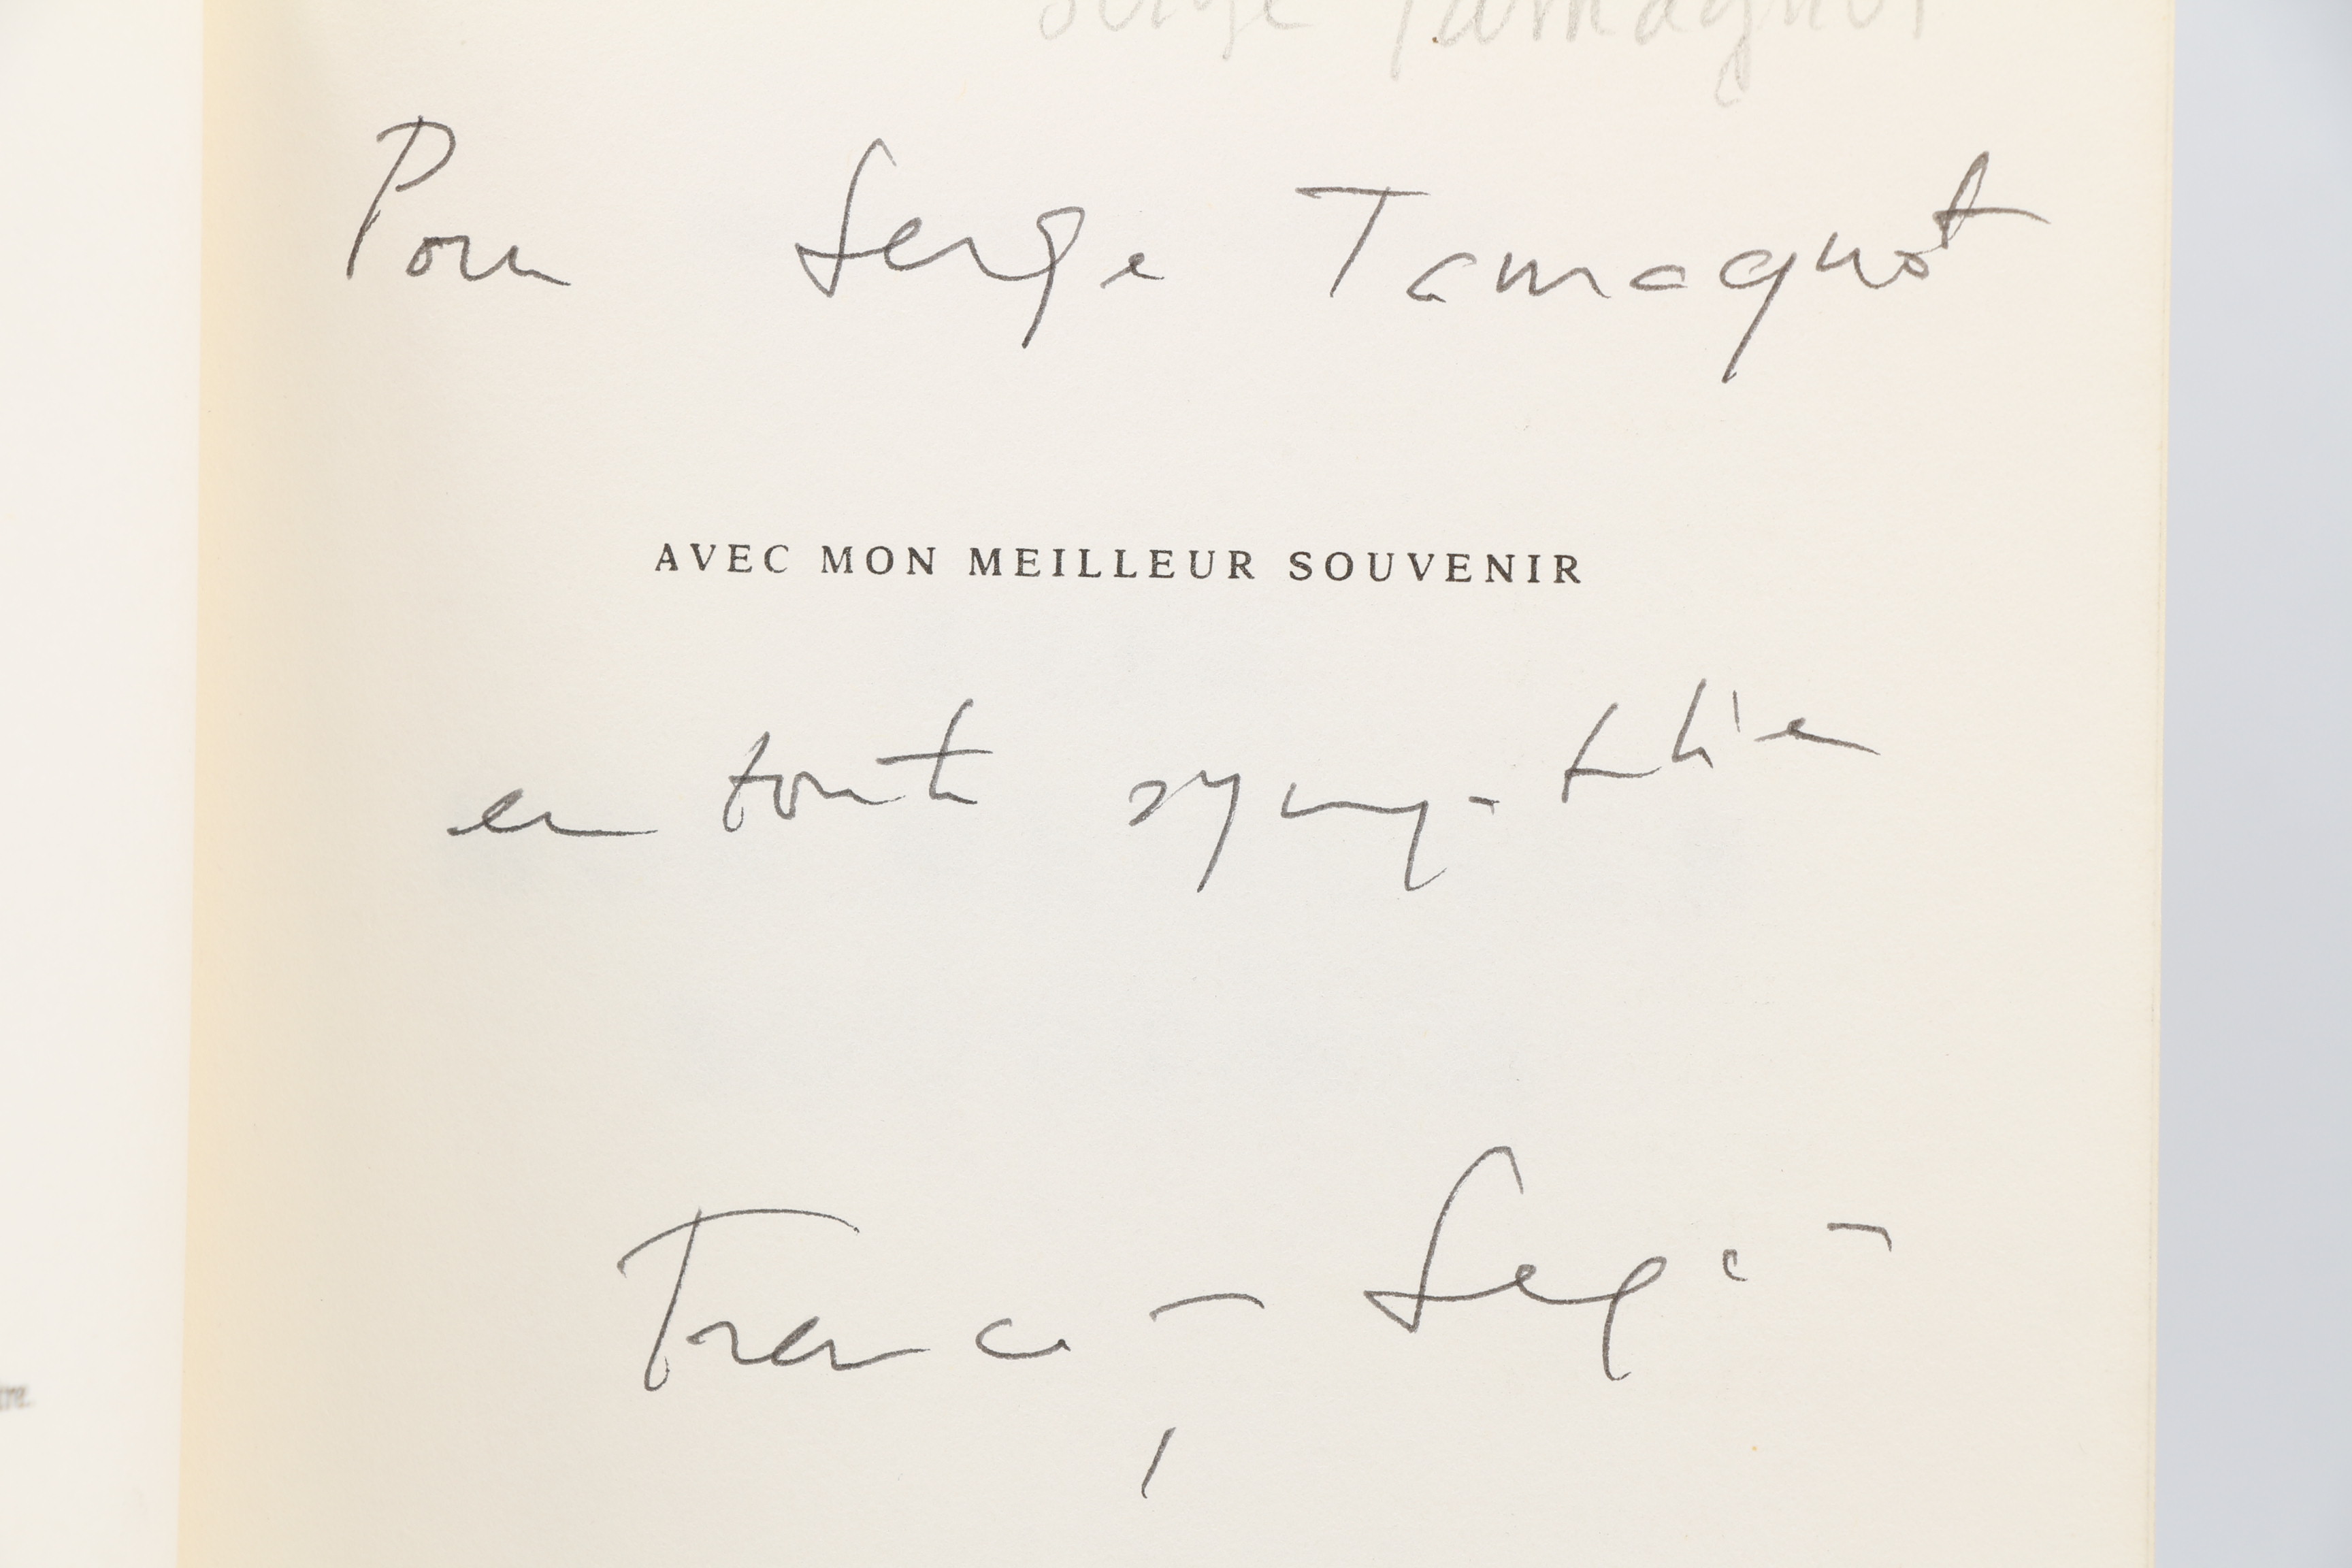 Serge Tamagnot
Pour Serge Tamagnot
AVEC MON MEILLEUR SOUVENIR
en toute sympathie
Françoise Sagan